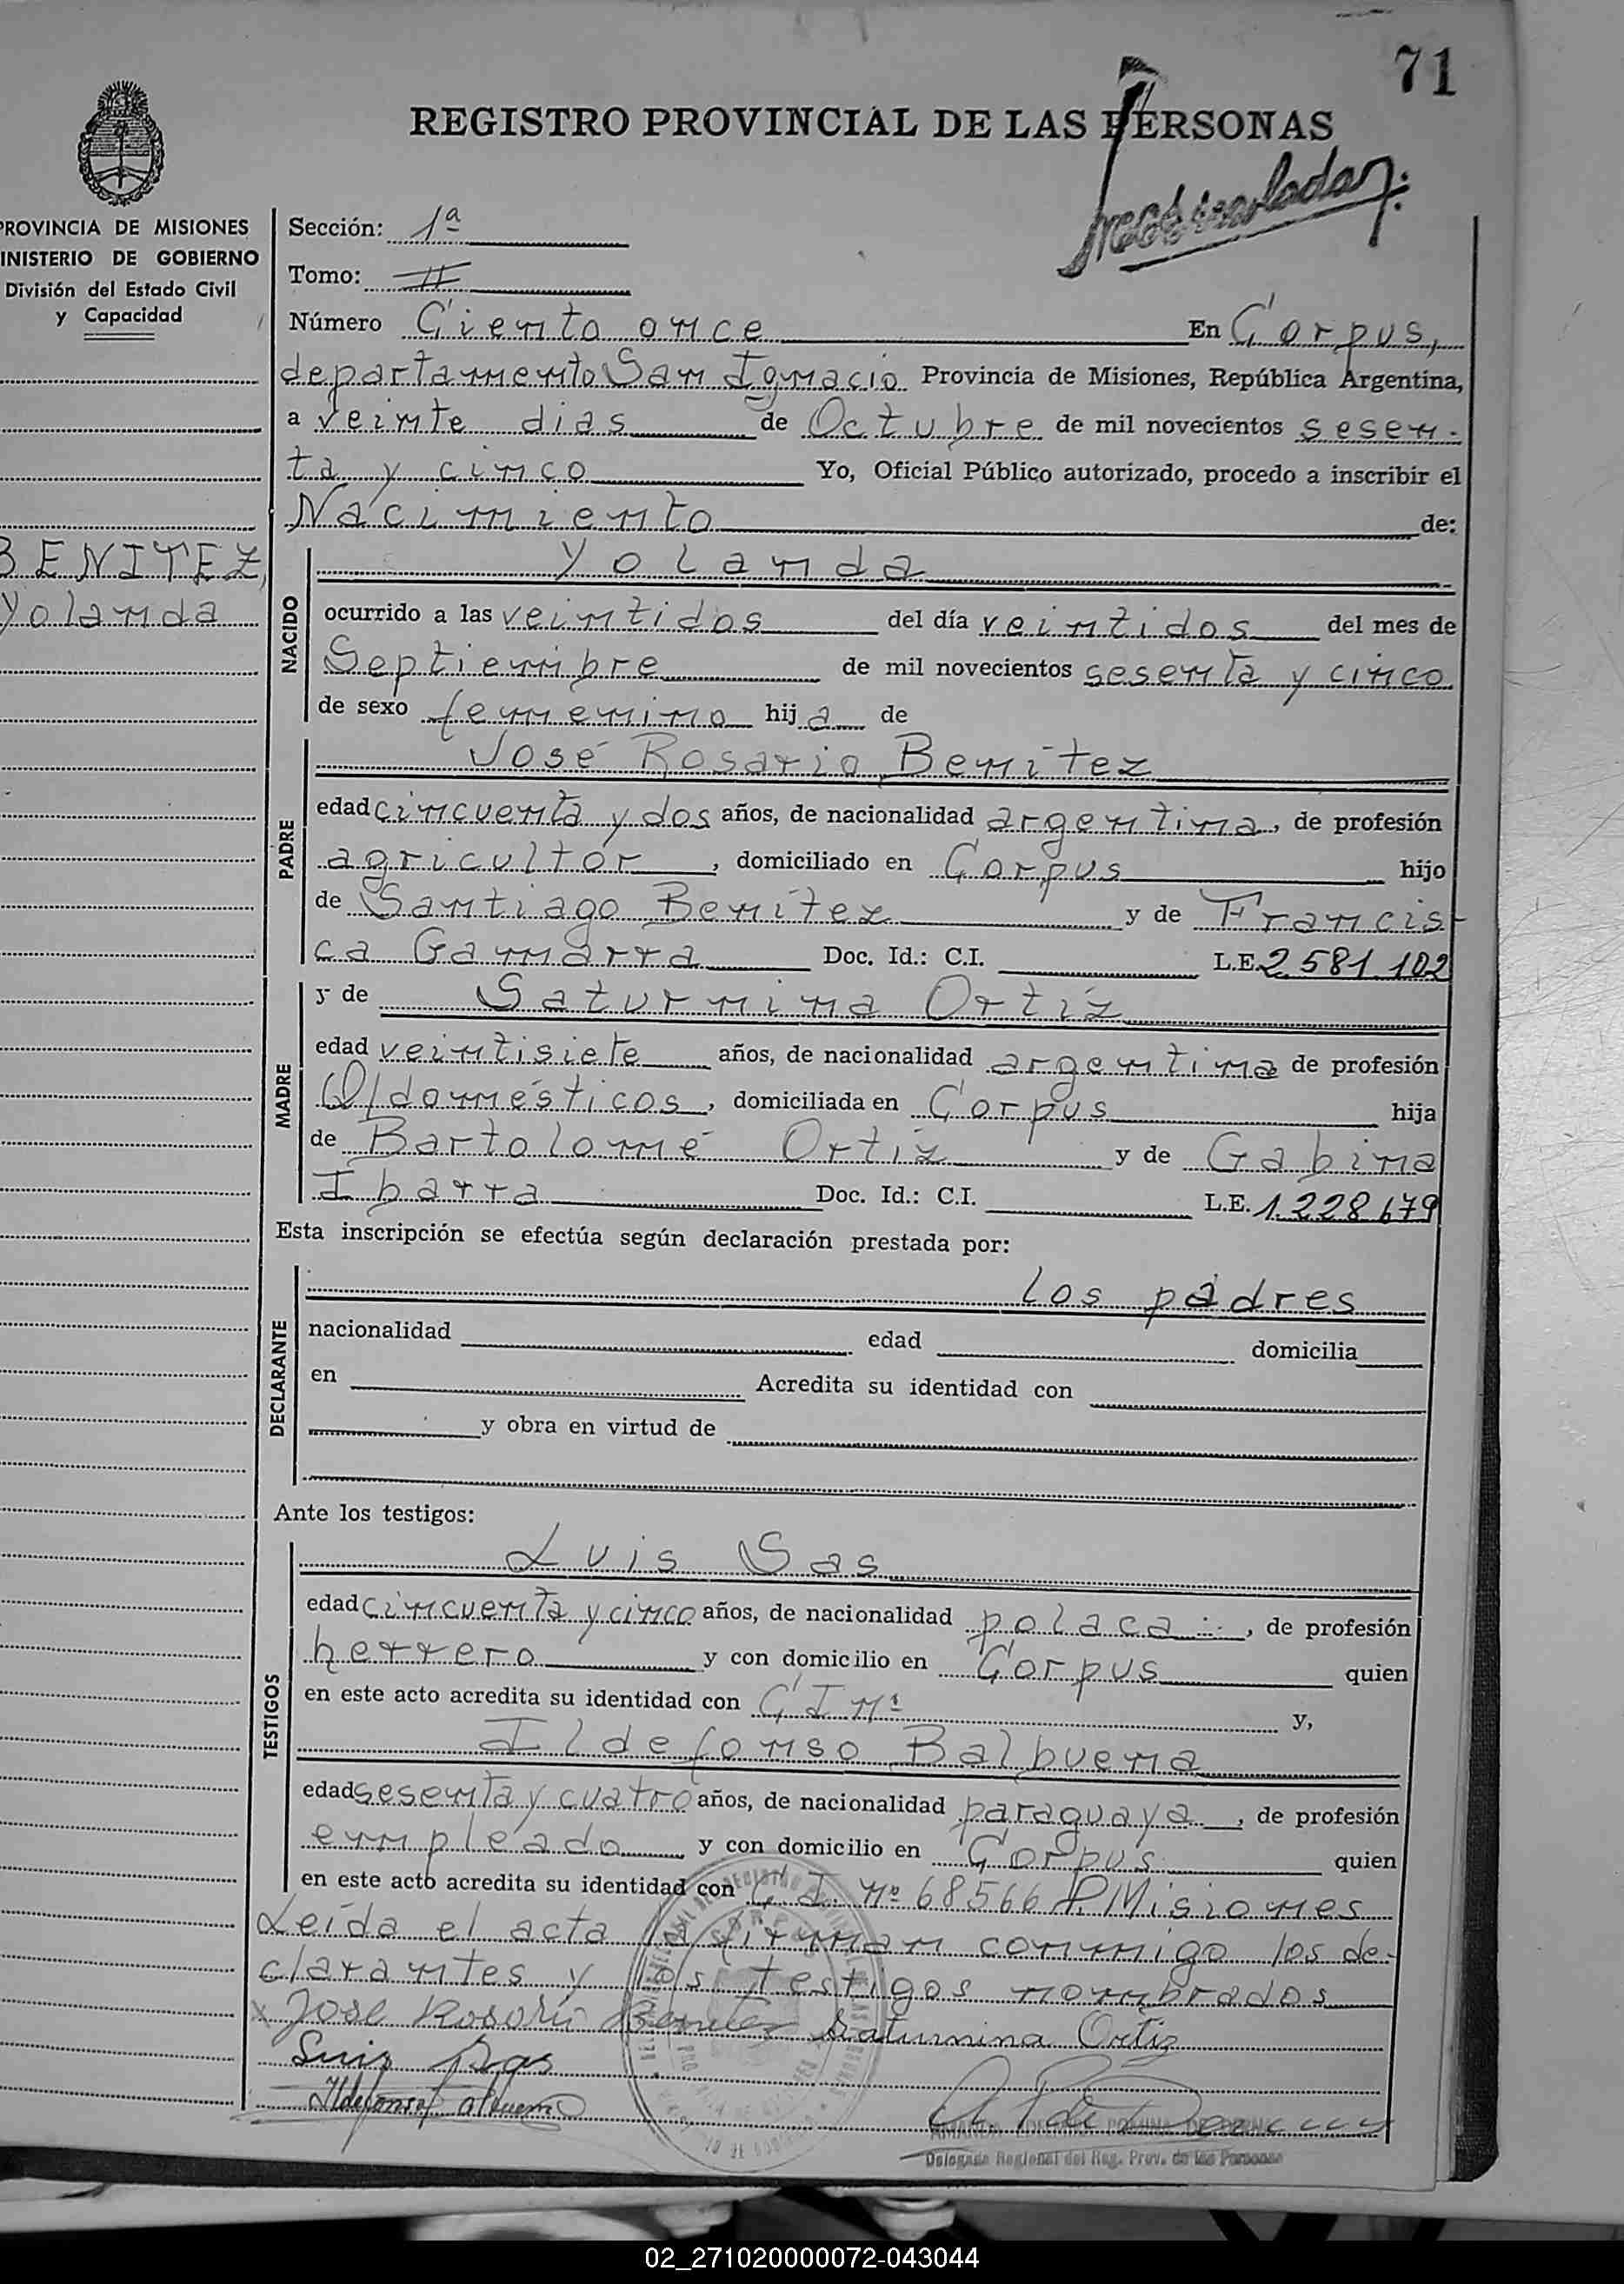 71
REGISTRO PROVINCIAL DE LAS PERSONAS
PROVINCIA DE MISIONES
INISTERIO DE GOBIERNO
División del Estado Civil
y Capacidad
BENITEZ,
Yolanda
Sección: 1ª
Tomo: II
Número Ciento once En Corpus,
departamento San Ignacio Provincia de Misiones, República Argentina,
a veinte dias de Octubre de mil novecientos sesen-
ta y cinco Yo, Oficial Público autorizado, procedo a inscribir el
Nacimiento de:
NACIDO
Yolanda
ocurrido a las veintidos del día veintidos del mes de
Septiembre de mil novecientos sesenta y cinco
de sexo femenino hija de
PADRE
José Rosario Benitez
edad cincuenta y dos años, de nacionalidad argentina, de profesión
agricultor, domiciliado en Corpus hijo
de Santiago Benitez y de Francis-
ca Gamarra Doc. Id.: C.I. L.E. 2 581 102
MADRE
y de Saturnina Ortiz
edad veintisiete años, de nacionalidad argentina de profesión
Q/domésticos, domiciliada en Corpus hija
de Bartolomé Ortiz y de Gabina
Ibarra Doc. Id.: C.I. L.E. 1.228 679
Esta inscripción se efectúa según declaración prestada por:
DECLARANTE
los padres
nacionalidad edad domicilia
en Acredita su identidad con
y obra en virtud de
Ante los testigos:
TESTIGOS
Luis Sas
edad cincuenta y cinco años, de nacionalidad polaca, de profesión
herrero y con domicilio en Corpus quien
en este acto acredita su identidad con C I Nº y,
Ildefonso Balbuena
edad sesenta y cuatro años, de nacionalidad paraguaya, de profesión
empleado y con domicilio en Corpus quien
en este acto acredita su identidad con C. I. Nº 68566 P. Misiones
Leída el acta la firman conmigo los de-
clarantes y los testigos nombrados
x Jose Rosario Benitez Saturnina Ortiz
Luis Sas
Ildefonso Balbuena
Delegada Regional del Reg. Prov. de las Personas
02_271020000072-043044